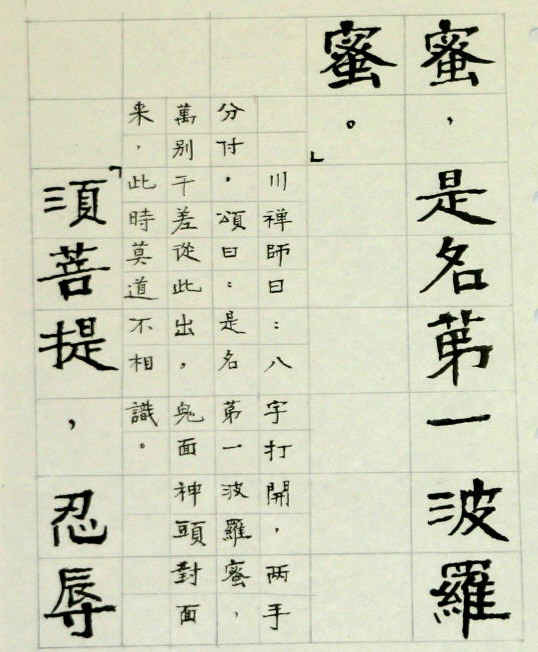 蜜，是名苐一波羅
蜜。」
川禅師曰：八字打開，两手
分付。頌曰：是名第一波羅蜜，
萬别千差從此出，鬼面神頭對面
来，此時莫道不相識。
「須菩提，忍辱